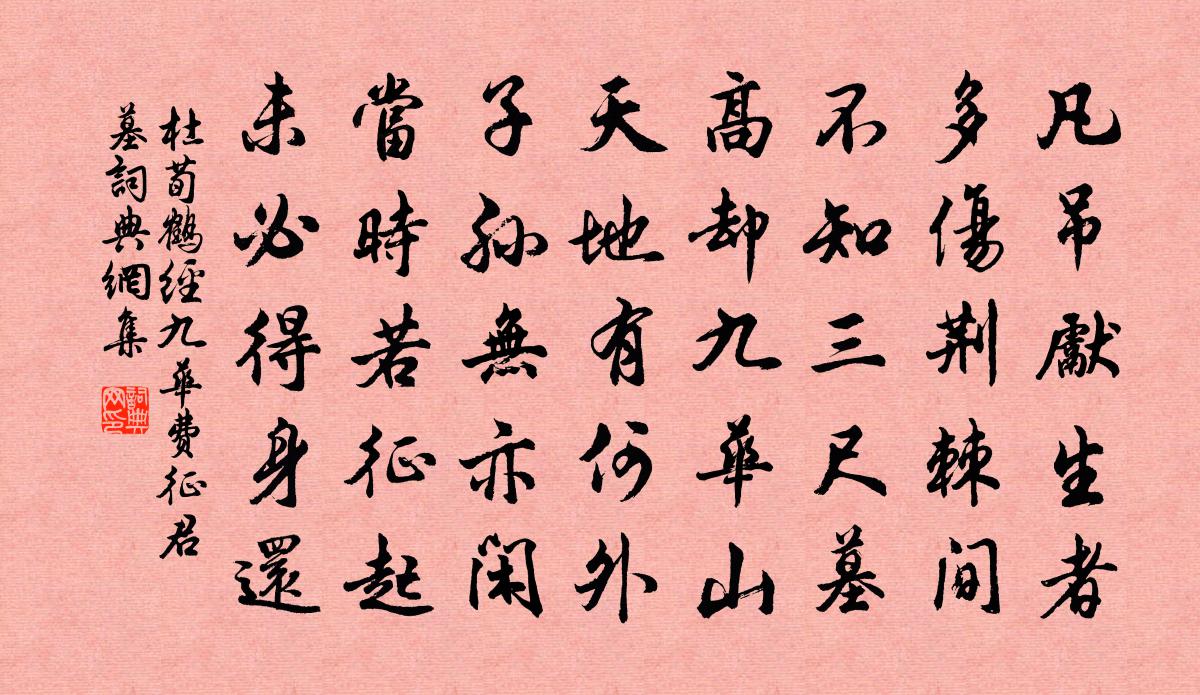 凡吊獻生者
多傷荆棘間
不知三尺墓
高却九華山
天地有何外
子孙無亦閑
當時若征起
未必得身還
杜荀鶴經九華費征君
墓詞典網集
詞典
网印